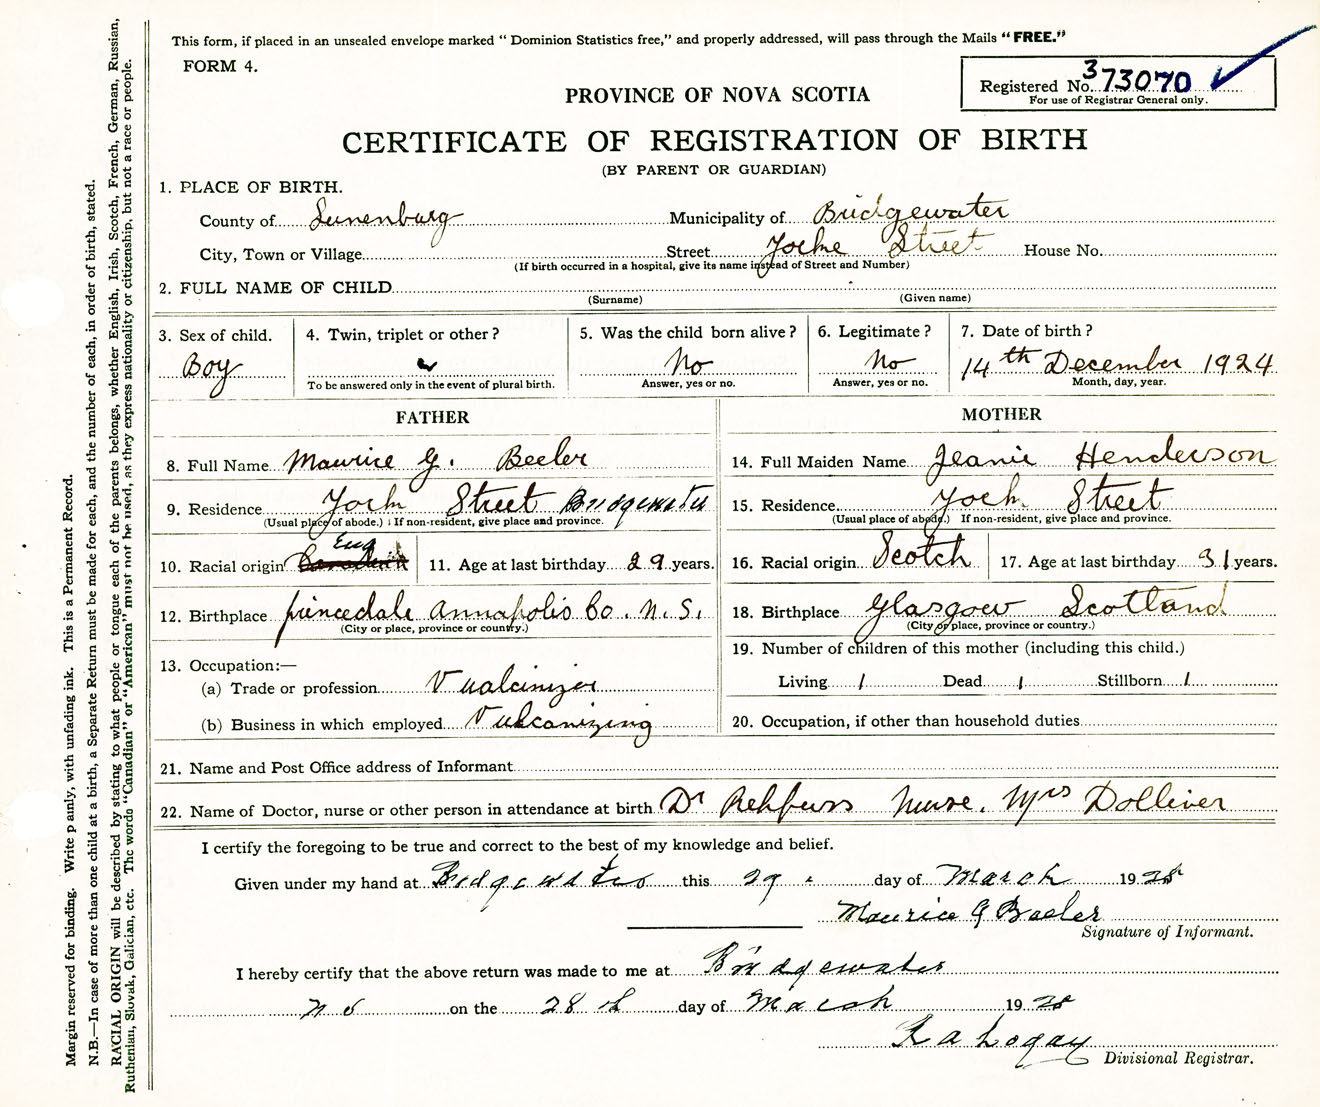 This form, if placed in an unsealed envelope marked " Dominion Statistics free," and properly addressed, will pass through the Mails " FREE."
FORM 4.
Registered No. 373070
For use of Registrar General only.
PROVINCE OF NOVA SCOTIA
CERTIFICATE OF REGISTRATION OF BIRTH
(BY PARENT OR GUARDIAN)
1. PLACE OF BIRTH.
County of Lunenburg Municipality of Bridgewater
City, Town or Village Street Yorke Street House No.
(If birth occurred in a hospital, give its name instead of Street and Number)
2. FULL NAME OF CHILD
(Surname) (Given name)
3. Sex of child. 4. Twin, triplet or other ? 5. Was the child born alive ? 6. Legitimate ? 7. Date of birth ?
Boy No No 14th December 1924
To be answered only in the event of plural birth. Answer, yes or no. Answer, yes or no. Month, day, year.
FATHER
8. Full Name Maurice G. Beeler
9. Residence York Street Bridgewater
(Usual place of abode.) If non-resident, give place and province.
Eng
10. Racial origin Canadian 11. Age at last birthday 29 years.
12. Birthplace princedale Annapolis Co. N.S.
(City or place, province or country.)
13. Occupation:—
(a) Trade or profession Vualcinizer
(b) Business in which employed Vulcanizing
MOTHER
14. Full Maiden Name Jeanie Henderson
15. Residence York Street
(Usual place of abode.) If non-resident, give place and province.
16. Racial origin Scotch 17. Age at last birthday 31 years.
18. Birthplace Glasgow Scotland
(City or place, province or country.)
19. Number of children of this mother (including this child.)
Living 1 Dead 1 Stillborn 1
20. Occupation, if other than household duties
21. Name and Post Office address of Informant
22. Name of Doctor, nurse or other person in attendance at birth Dr Rehfuss Nurse. Mrs Dolliver
I certify the foregoing to be true and correct to the best of my knowledge and belief.
Given under my hand at Bridgewater this 29 day of March 1928
Maurice G Beeler
Signature of Informant.
I hereby certify that the above return was made to me at Bridgewater
N S on the 28th day of March 1928
Divisional Registrar.
Margin reserved for binding. Write plainly, with unfading ink. This is a Permanent Record.
N.B.—In case of more than one child at a birth, a Separate Return must be made for each, and the number of each, in order of birth, stated.
RACIAL ORIGIN will be described by stating to what people or tongue each of the parents belongs, whether English, Irish, Scotch, French, German, Russian,
Ruthenian, Slovak, Galician, etc. The words "Canadian" or "American" must not be used, as they express nationality or citizenship, but not a race or people.